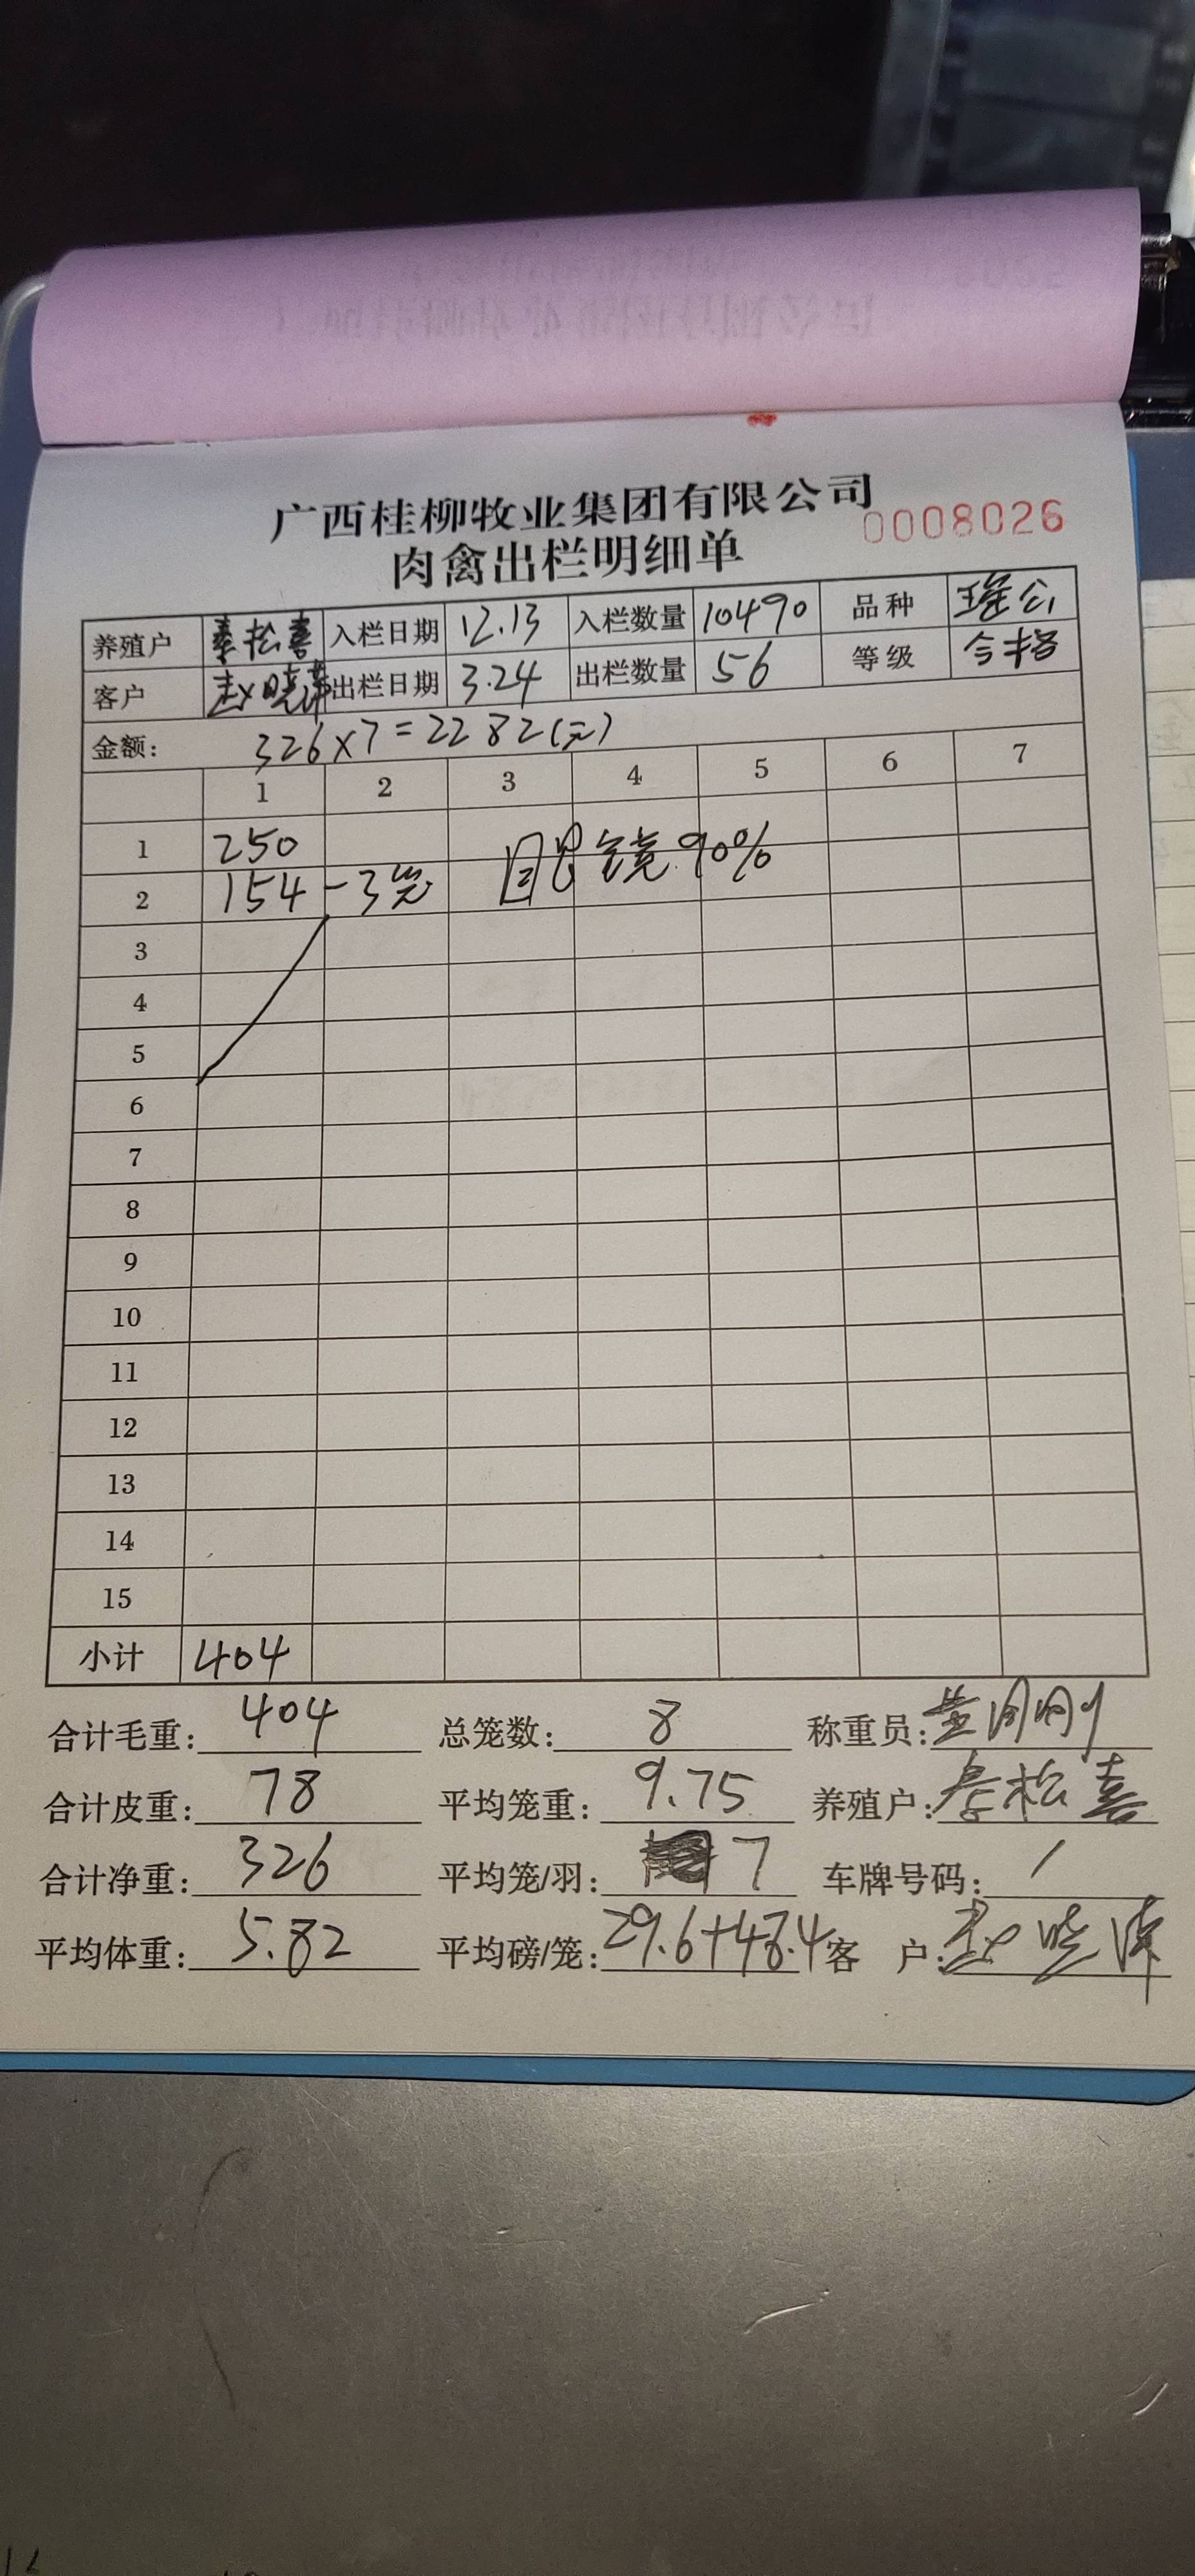 广西桂柳牧业集团有限公司
0008026
肉禽出栏明细单
养殖户 秦松喜 入栏日期 12.13 入栏数量 10490 品种 瑶公
客户 赵晓 出栏日期 3.24 出栏数量 56 等级 合格
金额: 326×7=2282(元)
1 2 3 4 5 6 7
1 250 眼镜90%
2 154-3笼
3
4
5
6
7
8
9
10
11
12
13
14
15
小计 404
合计毛重: 404 总笼数: 8 称重员: 黄刚
合计皮重: 78 平均笼重: 9.75 养殖户: 秦松喜
合计净重: 326 平均笼/羽: 7 车牌号码: /
平均体重: 5.82 平均磅/笼: 29.6+48.4 客 户: 赵晓